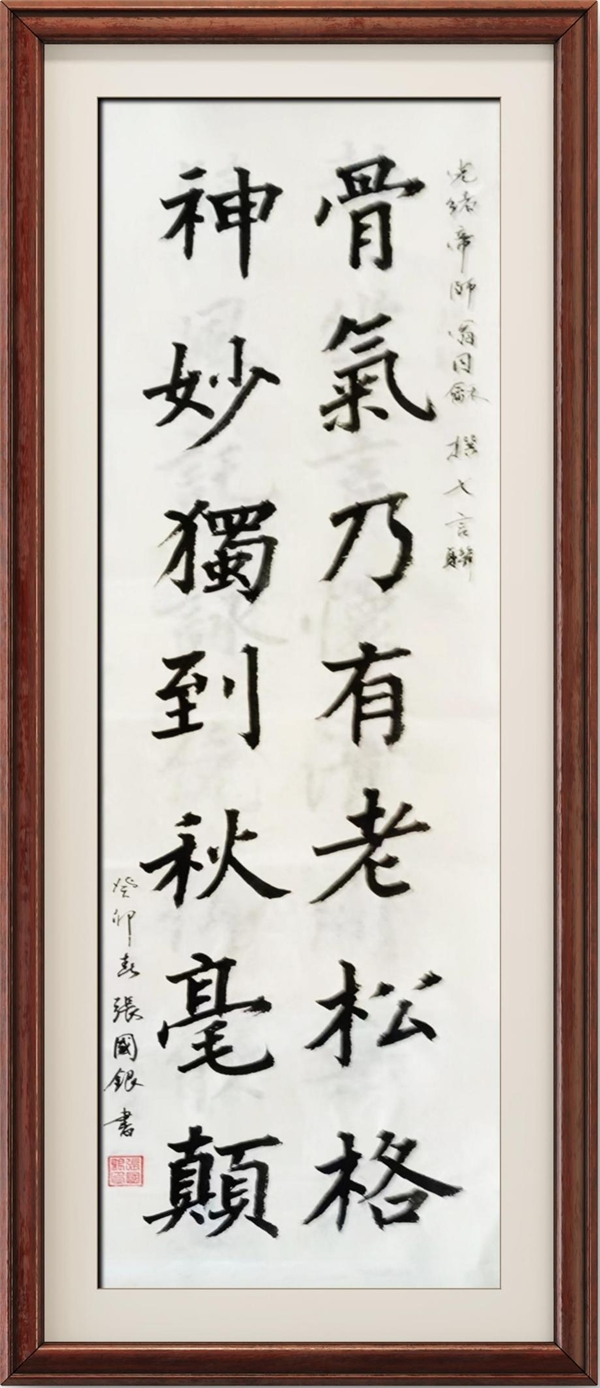 光緒帝師翁同龢撰七言聯
骨氣乃有老松格
神妙獨到秋毫顛
癸卯春張國銀書